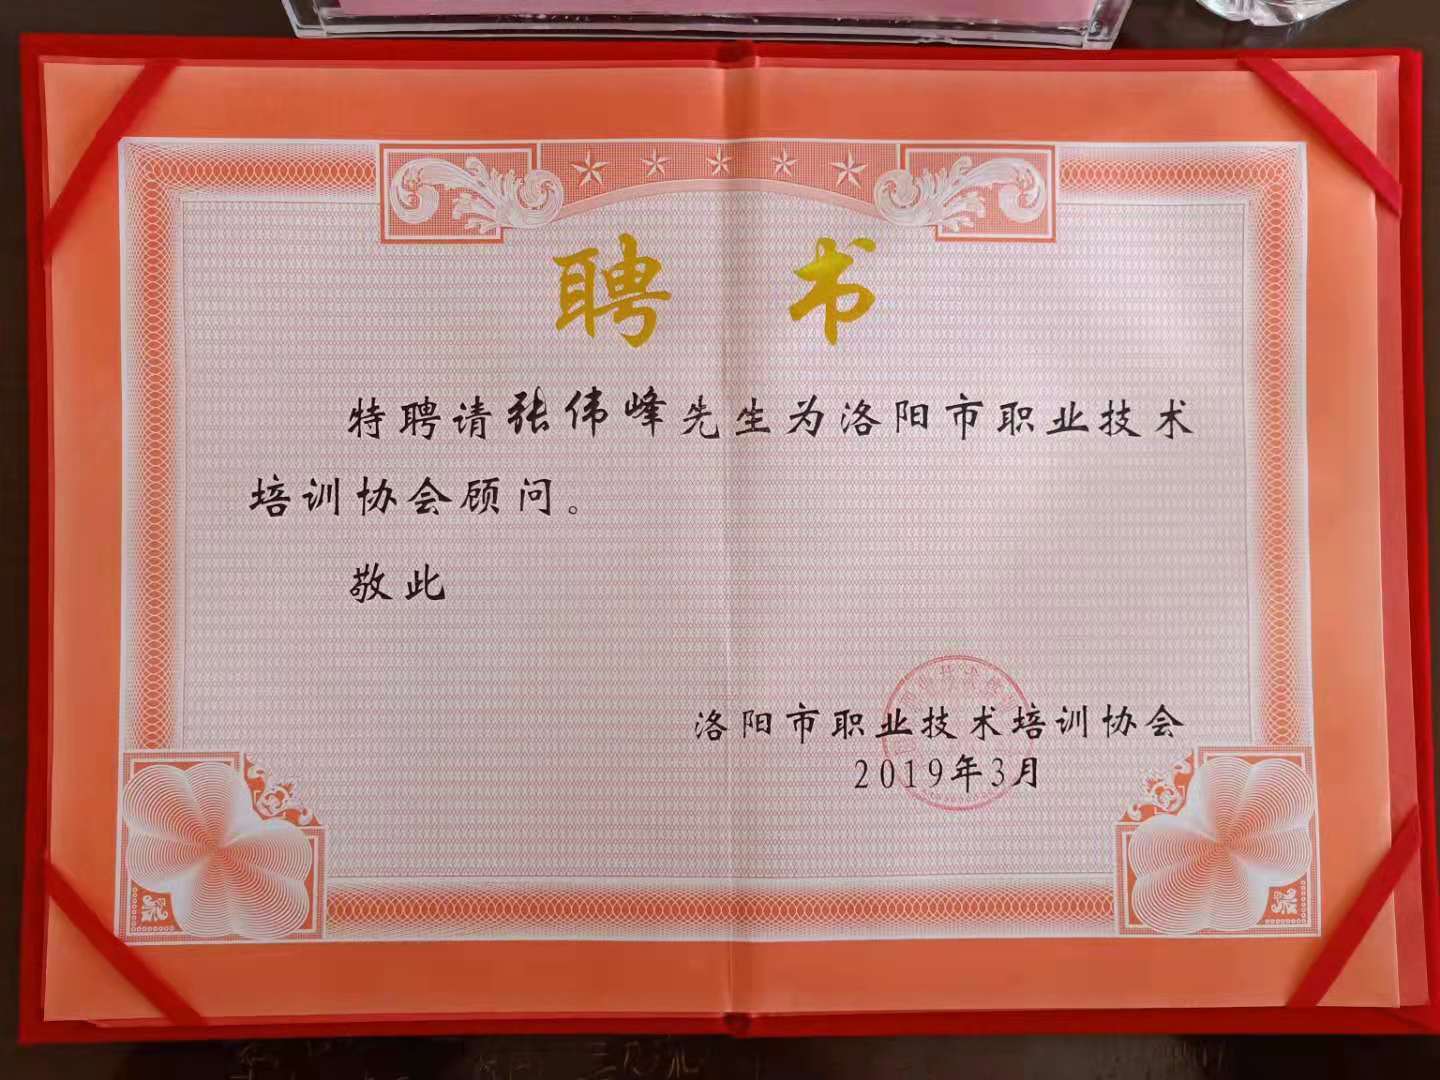 聘书
特聘请张伟峰先生为洛阳市职业技术
培训协会顾问。
敬此
洛阳市职业技术培训协会
2019年3月